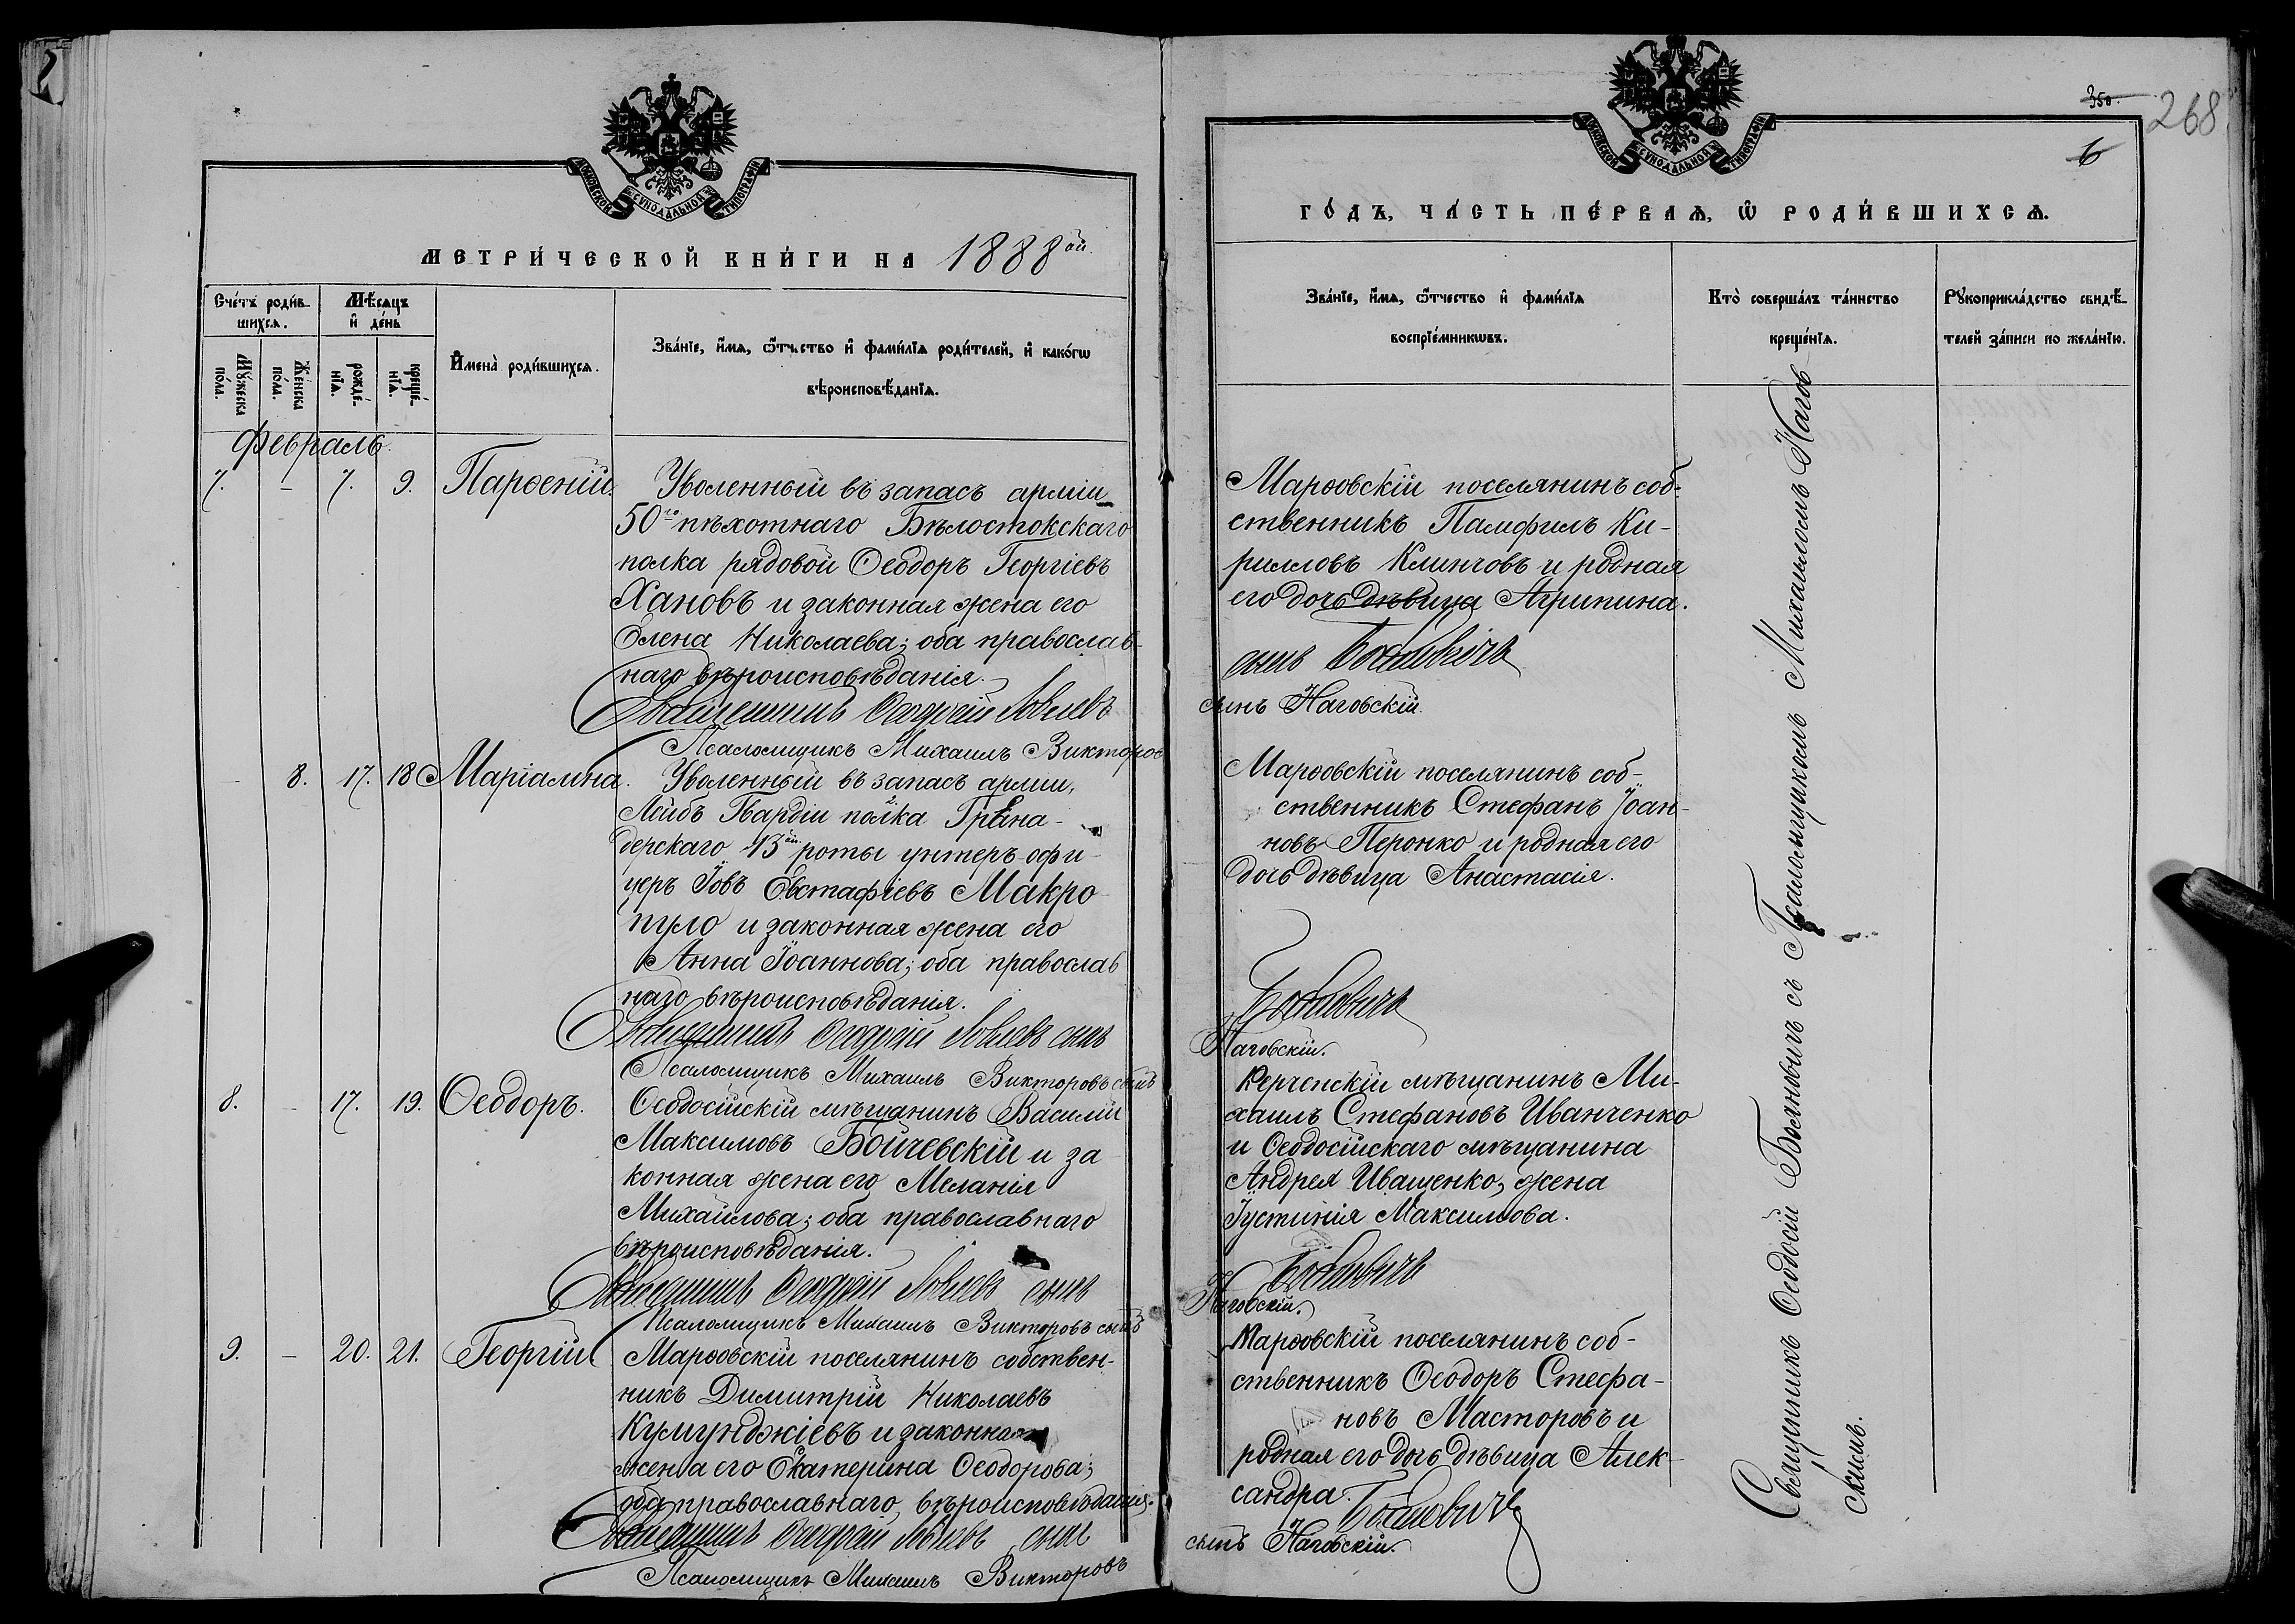 МОСКОВСКОЙ СѴНОДАЛЬНОЙ ТИПОГРАФІИ
МЕТРИ́ЧЕСКОЙ КНИ́ГИ НА 1888ой
Сче́тъ роди́в-
шихсѧ.
Мѣ́сѧцъ
и҆ де́нь
Мꙋ́жеска по́ла.
Же́нска по́ла.
рожде́-
нїѧ.
креще́-
нїѧ.
И҆мена̀ роди́вшихсѧ.
Зва́нїе, и҆́мѧ, ѻ҆́тчество и҆ фами́лїѧ роди́телей, и҆ како́гѡ
вѣроисповѣ́данїѧ.
Февраль.
7. - 7. 9. Парѳеній.
Уволенный въ запасъ арміи
50го пѣхотнаго Бѣлостокскаго
полка рядовой Ѳеодоръ Георгіевъ
Хановъ и законная жена его
Елена Николаева; оба православ-
наго вѣроисповѣданія.
Священникъ Ѳеодосій
Псаломщикъ Михаилъ Викторов
- 8. 17. 18 Маріамна.
Уволенный въ запасъ арміи,
Лейбъ Гвардіи полка Грена-
дерскаго 13ой роты унтеръ-офи-
церъ Іовъ Евстафіевъ Макро-
пуло и законная жена его
Анна Іоаннова; оба православ-
наго вѣроисповѣданія.
Священникъ Ѳеодосій сынъ
Псаломщикъ Михаилъ Викторовъ сынъ
8. - 17. 19. Ѳеодоръ.
Ѳеодосійскій мѣщанинъ Василій
Максимовъ Бойчевскій и за-
конная жена его Меланія
Михайлова; оба православнаго
вѣроисповѣданія.
Священникъ Ѳеодосій сынъ
Псаломщикъ Михаилъ Викторовъ сынъ
9. - 20. 21. Георгій
Марѳовскій поселянинъ собствен-
никъ Димитрій Николаевъ
Кумунджіевъ и законная
жена его Екатерина Ѳеодорова;
оба православнаго вѣроисповѣданія.
Священникъ Ѳеодосій сынъ
Псаломщикъ Михаилъ Викторовъ
МОСКОВСКОЙ СѴНОДАЛЬНОЙ ТИПОГРАФІИ
350.
268
6
ГО́ДЪ, ЧА́СТЬ ПЕ́РВАѦ, Ѡ҆ РОДИ́ВШИХСѦ.
Зва́нїе, и҆́мѧ, ѻ҆́тчество и҆ фами́лїѧ
воспрїе́мникѡвъ.
Кто̀ соверша́лъ та́инство
креще́нїѧ.
Рꙋкоприкла́дство свидѣ́-
телей за́писи по жела́нїю.
Марѳовскій поселянинъ соб-
ственникъ Памфилъ Ки-
рилловъ Клинчовъ и родная
его дочь дѣвица Агрипина.
сынъ Бояновичъ
сынъ Наговскій.
Марѳовскій поселянинъ соб-
ственникъ Стефанъ Іоан-
новъ Перонко и родная его
дочь дѣвица Анастасія.
Бояновичъ
Наговскій.
Керченскій мѣщанинъ Ми-
хаилъ Стефановъ Иванченко
и Ѳеодосійскаго мѣщанина
Андрея Иващенко, жена
Іустинія Максимова.
Бояновичъ
Наговскій.
Марѳовскій поселянинъ соб-
ственникъ Ѳеодоръ Стефа-
новъ Масторовъ и
родная его дочь дѣвица Алек-
сандра.
Бояновичъ
сынъ Наговскій.
Священникъ Ѳеодосій Бояновичъ съ Псаломщикомъ Михаиломъ Нагов
скимъ.